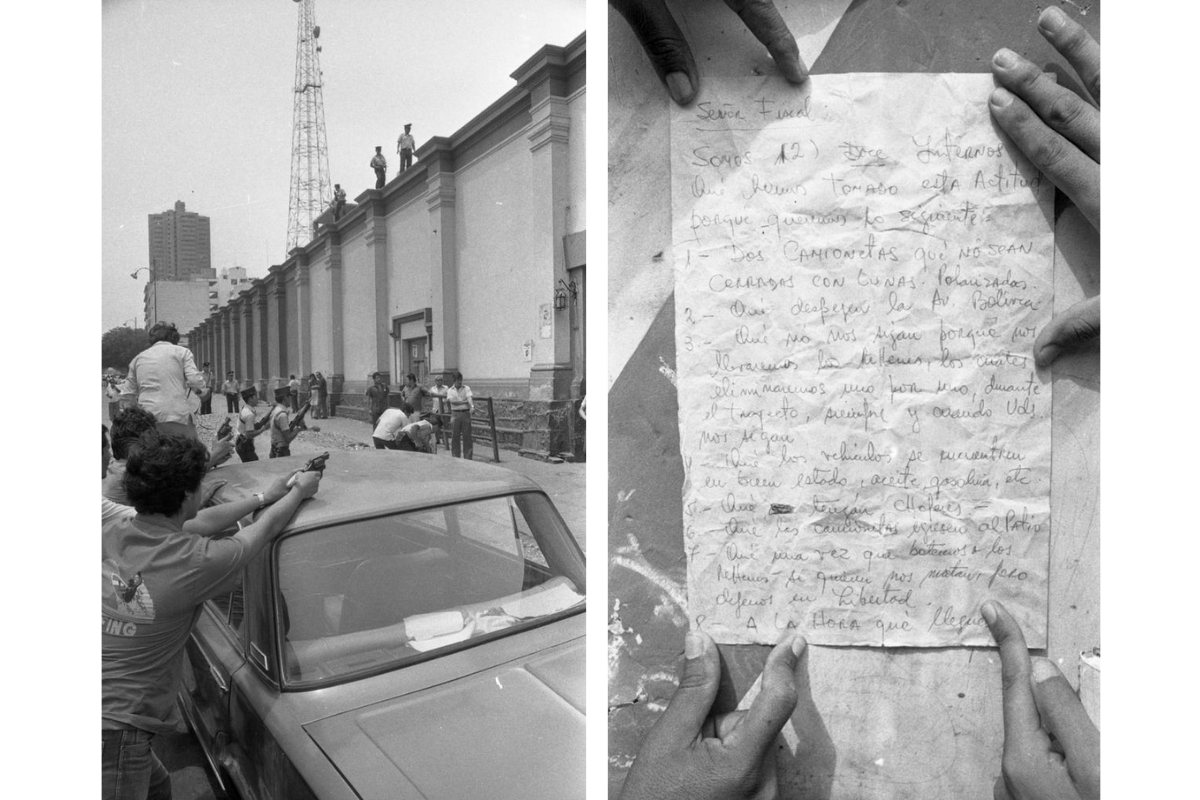 ING
Señor Fiscal:
Somos 12) Doce Internos,
Que hemos TOMADO esta Actitud
porque queremos lo siguiente:
1- DOS CAMIONETAS qué NO SEAN
CERRADAS CON LUNAS. Polarizadas.
2.- Qué despejen la Av. Bolivia
3.- Qué no nos sigan porque nos
llevaremos los Rehenes, los cuales
eliminaremos uno por uno, durante
el trayecto, siempre y cuando Uds.
nos sigan.
4- Qué los vehiculos se encuentren
en buen estado, aceite, gasolina, etc.
5.- Qué tengán
6- Qué las camionetas al Patio
7.- Qué una vez que botemos a los
Rehenes si quieren nos matan, pero
dejenos en Libertad.
8- A LA HORA que